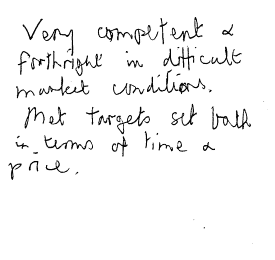 Very competent &
forthright in difficult
market conditions.
Met targets set both
in terms of time &
price.